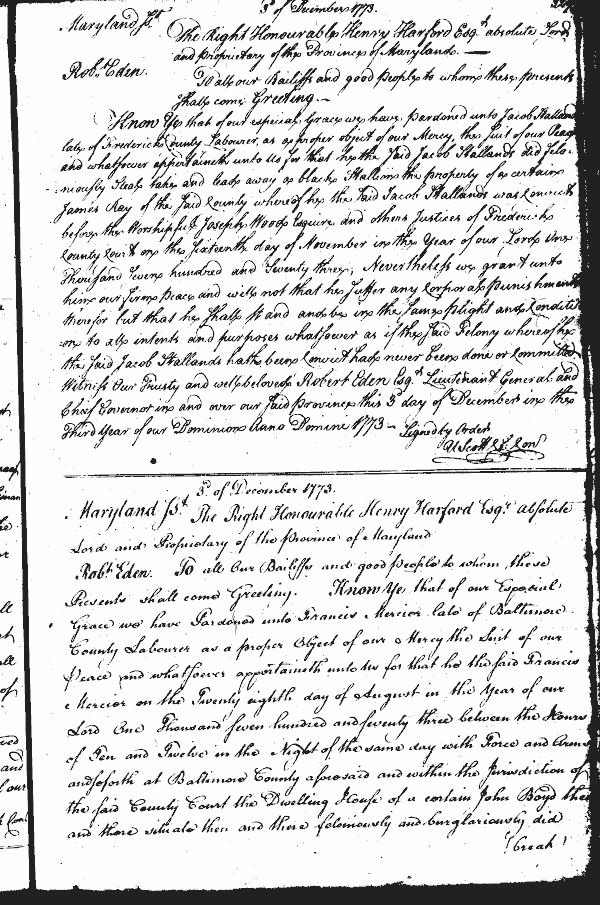 3d of December 1773.
Maryland Sst. The Right Honourable Henry Harford Esqr. absolute Lord
and Proprietary of the Province of Maryland. —
Robt. Eden. To all our Bailiffs and good People to whom these presents
shall come Greeting. —
Know Ye that of our especial Grace we have pardoned unto Jacob Stallands
late of Frederick County Labourer, as a proper object of our Mercy, the Suit of our Peace
and whatsoever appertaineth unto us for that he the said Jacob Stallands did felo-
niously steal take and lead away a black Stallion the property of a certain
James Ray of the said County whereof he the said Jacob Stallands was Convict
before the Worshipfull Joseph Wood Esquire and others Justices of Frederick
County Court on the Sixteenth day of November in the Year of our Lord One
Thousand Seven hundred and Seventy three; Nevertheless we grant unto
him our firm Peace and will not that he suffer any Corporal Punishment
therefor but that he shall st and and be in the same Plight and Conditi-
on to all intents and purposes whatsoever as if the said Felony whereof he
the said Jacob Stallands hath been Convict had never been done or Committed
Witness Our Trusty and wellbeloved Robert Eden Esqr. Lieutenant General and
Chief Governor in and over our said Province this 3d day of December in the
Third Year of our Dominion Anno Domini 1773 — Signed by Order
U Scott Cl. Con
3d. of December 1773.
Maryland Sst. The Right Honourable Henry Harford Esqr. Absolute
Lord and Proprietary of the Province of Maryland
Robt. Eden. To all Our Bailiffs and good People to whom these
Presents shall come Greeting. Know Ye that of our Especial
Grace we have Pardoned unto Francis Mercier late of Baltimore
County Labourer as a proper Object of our Mercy the Suit of our
Peace and whatsoever appertaineth unto Us for that he the said Francis
Mercier on the Twenty eighth day of August in the Year of our
Lord One Thousand seven hundred and seventy three between the Hours
of Ten and Twelve in the Night of the same day with Force and Arms
and soforth at Baltimore County aforesaid and within the Jurisdiction of
the said County Court the Dwelling House of a certain John Boyd there
and there situate then and there feloniously and burglariously did
break